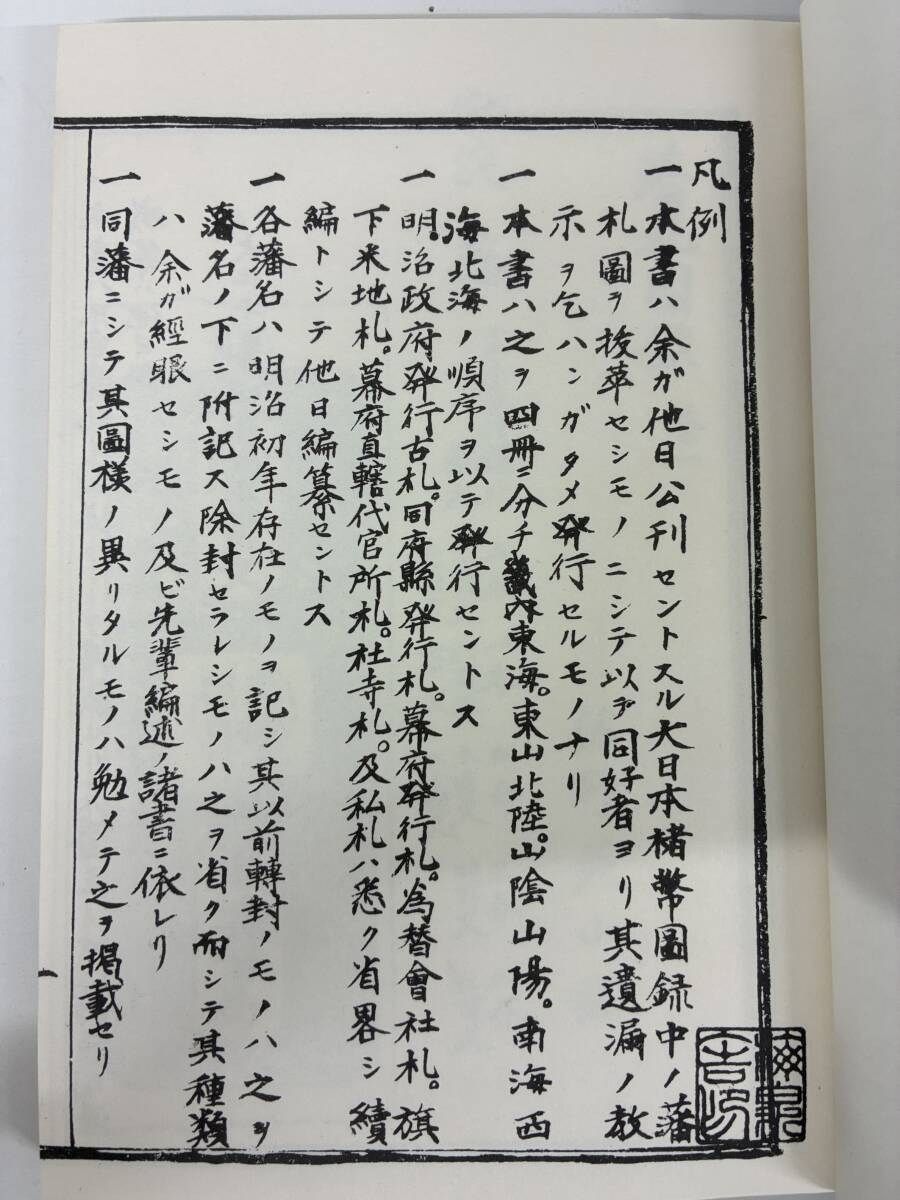 凡例
一本書ハ余ガ他日公刊セントスル大日本楮幣圖録中ノ藩
札圖ヲ抜萃セシモノニシテ以テ同好者ヨリ其遺漏ノ教
示ヲ乞ハンガタメ発行セルモノナリ
一本書ハ之ヲ四冊ニ分チ畿内東海。東山北陸。山陰山陽。南海西
海北海ノ順序ヲ以テ発行セントス
一明治政府発行古札。同府縣発行札。幕府発行札。為替會社札。旗
下米地札。幕府直轄代官所札。社寺札。及私札ハ悉ク省畧シ續
編トシテ他日編纂セントス
一各藩名ハ明治初年存在ノモノヲ記シ其以前轉封ノモノハ之ヲ
藩名ノ下ニ附記ス除封セラレシモノハ之ヲ省ク而シテ其種類
ハ余ガ經眼セシモノ及ビ先輩編述ノ諸書ニ依レリ
一同藩ニシテ其圖様ノ異リタルモノハ勉メテ之ヲ掲載セリ
一